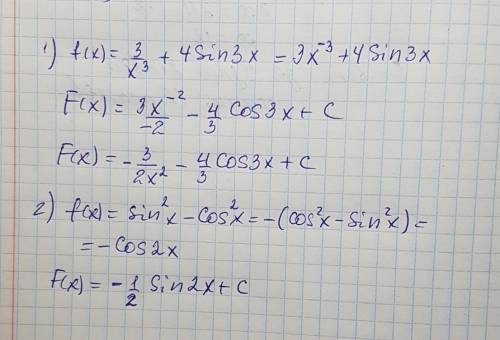 1) f(x) = 3/x³ + 4Sin3x = 3x⁻³ + 4Sin3x
F(x) = 3x⁻²/-2 - 4/3 Cos3x + C
F(x) = - 3/2x² - 4/3 Cos3x + C
2) f(x) = sin²x - Cos²x = -(cos²x - Sin²x) =
= - Cos2x
F(x) = - 1/2 Sin2x + C